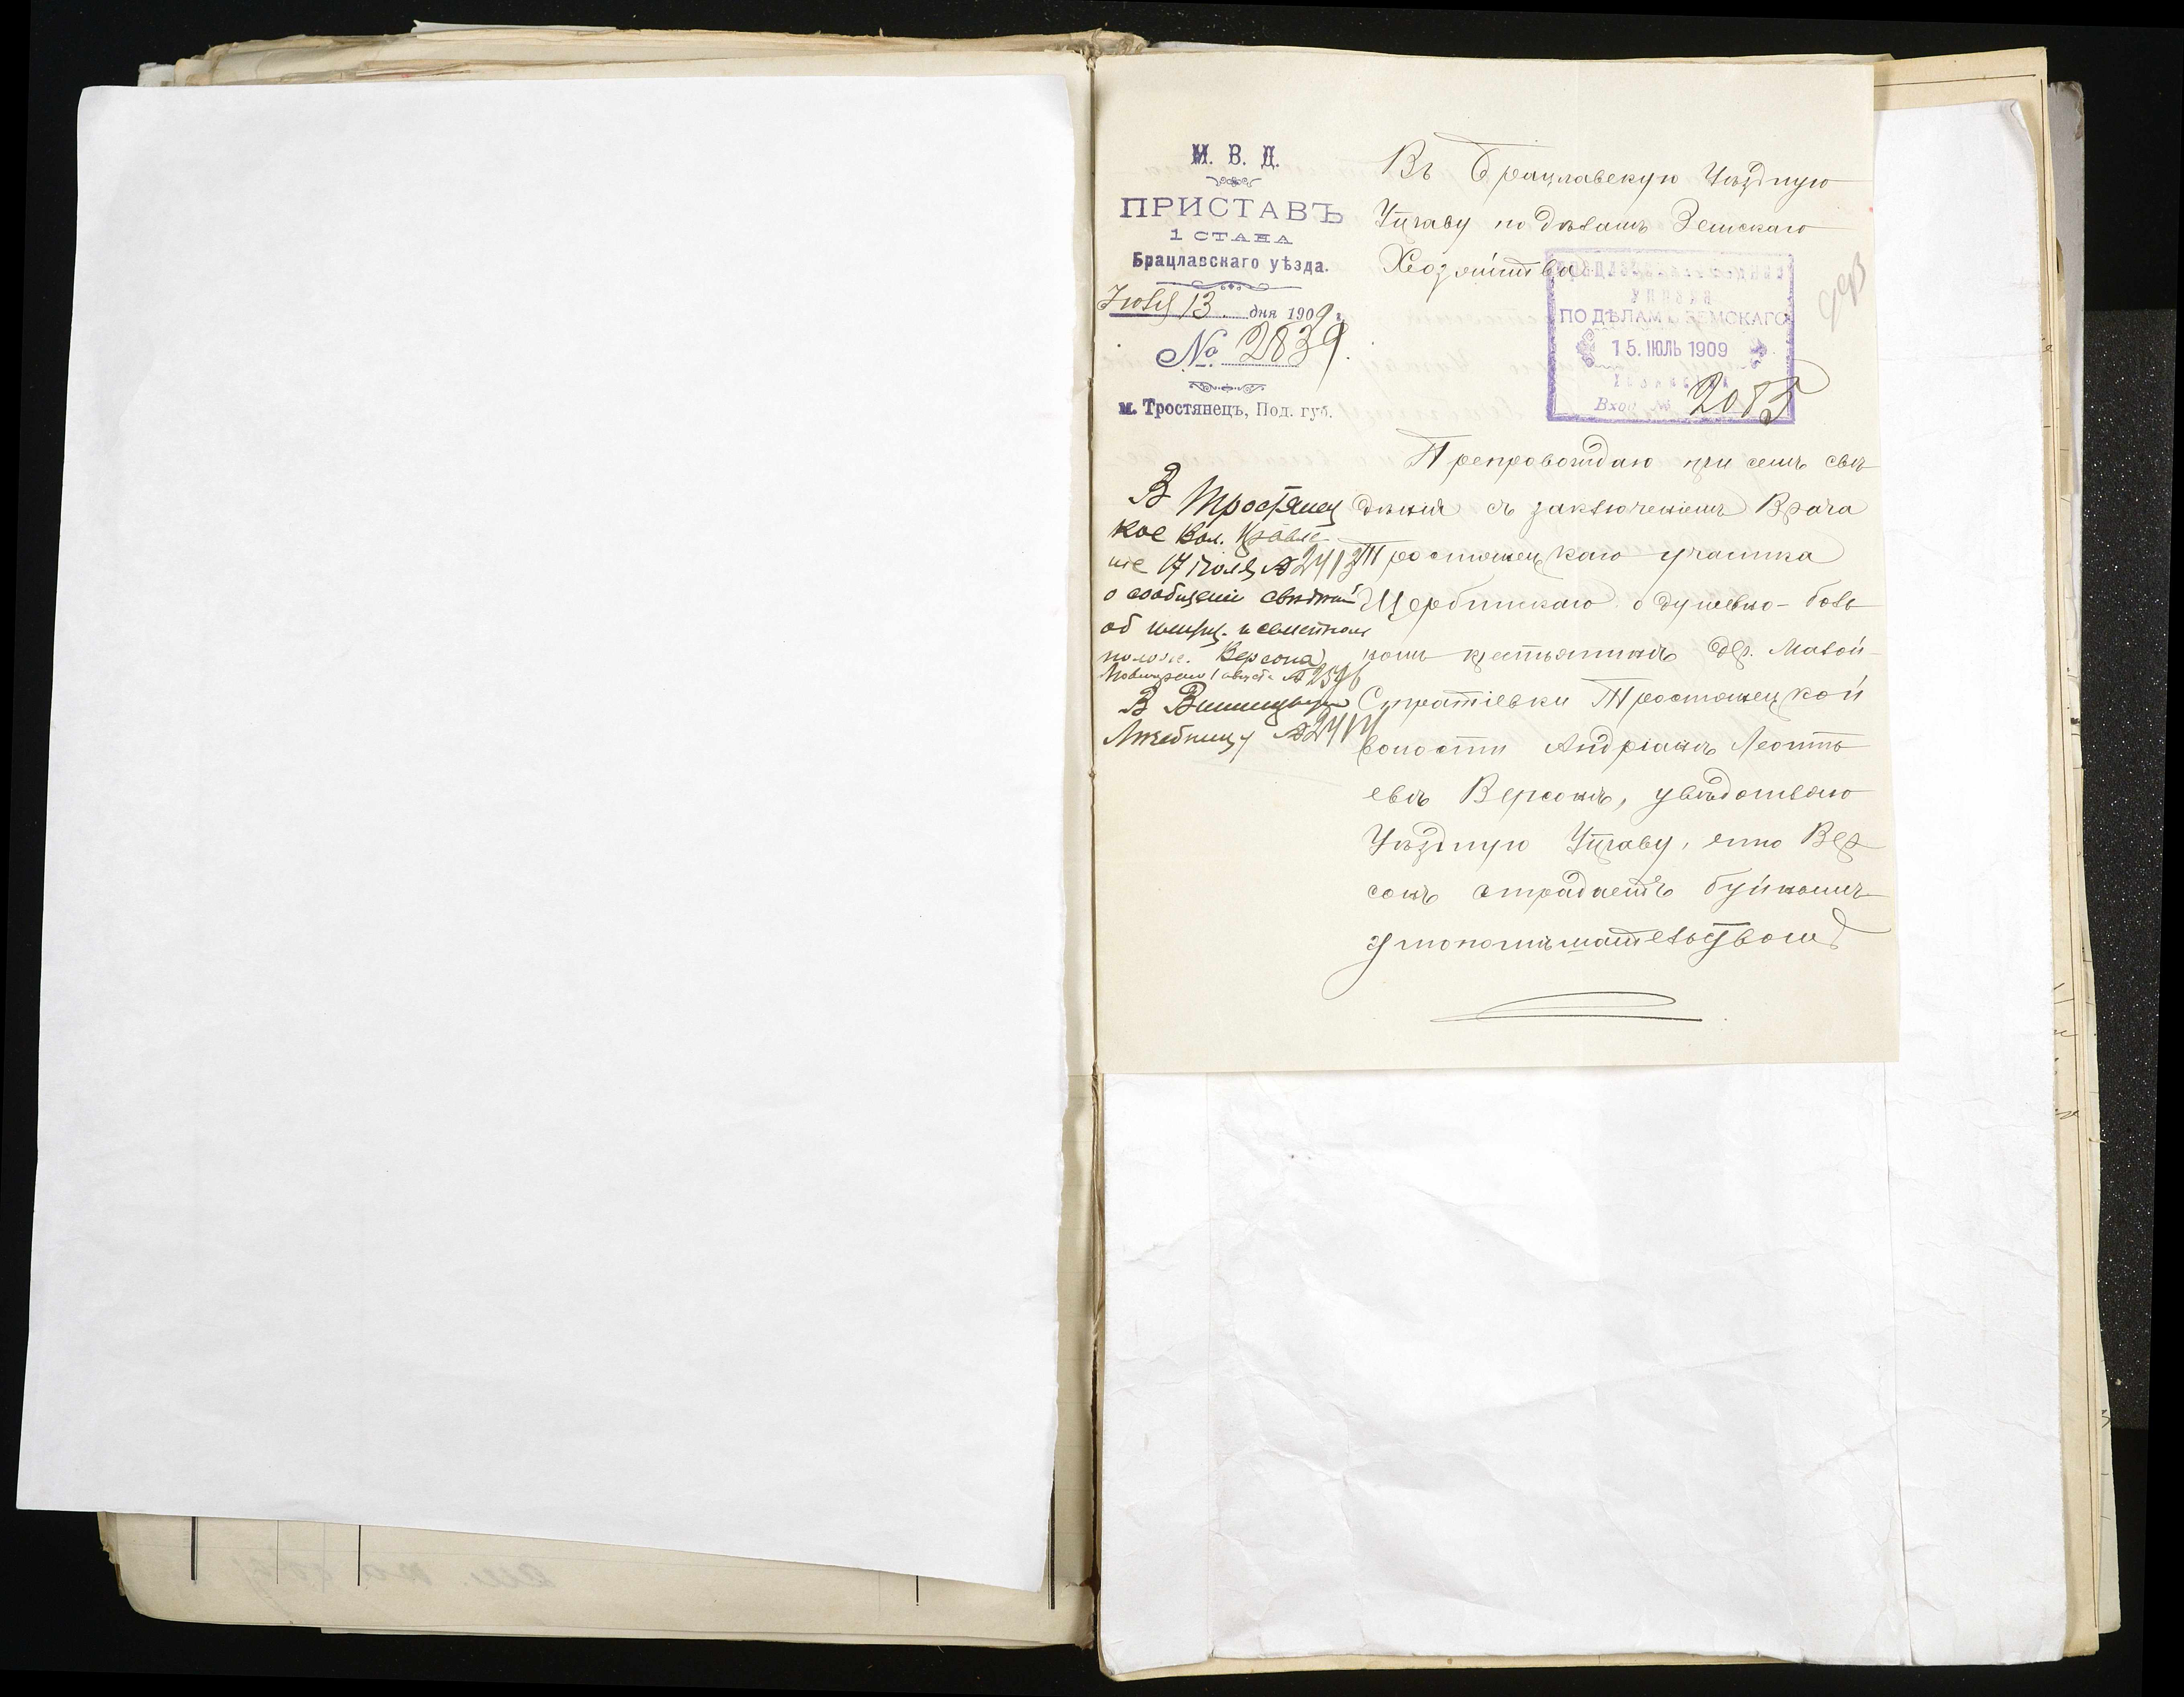 М. В. Д.
ПРИСТАВЪ
1 СТАНА
Брацлавскаго уѣзда.
Іюля 13 дня 1909 г.
№ 2839.
м. Тростянецъ, Под. губ.
Въ Брацлавскую Уѣздную
Управу по дѣламъ Земскаго
Хозяйства
УПРАВА
ПО ДѢЛАМЪ ЗЕМСКАГО
15. ІЮЛЬ 1909
Хозяйства
Вход. № 2085
Препровождаю при семъ свѣ
дѣнія съ заключеніемъ Врача
Тростянецкаго участка
Щербинскаго о душевно-боль
номъ крестьянинѣ дер. Малой-
Стратіевки Тростянецкой
волости Андріанѣ Леонть
евѣ Версонѣ, увѣдомляю
Уѣздную Управу, что Вер
сонъ страдаетъ буйнымъ
умопомѣшательствомъ
В Тростянец
кое Вол. Правле
ніе 17 іюля № 2413
о сообщеніи свѣдѣній
об имущ. и семейном
полож. Версона
Повторено 1 августа № 2546
В Винницкую
Лечебницу № 2414